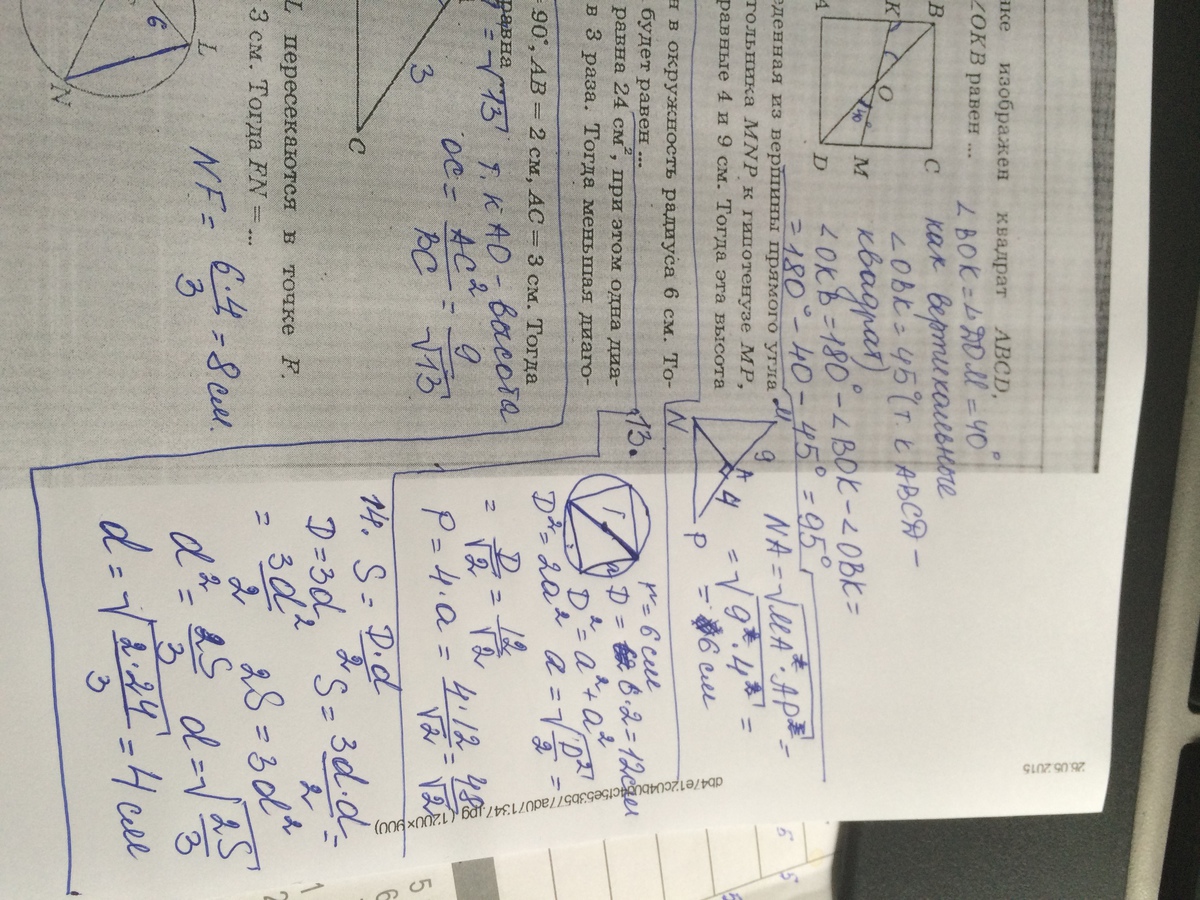 нке изображен квадрат ABCD,
∠OKB равен ...
B
C
K
O
40°
M
A
D
∠BOK=∠DOM=40°
как вертикальные
∠OBK=45°(т.к ABCD –
квадрат)
∠OKB=180°-∠BOK-∠OBK=
=180°-40-45°=95°
еденная из вершины прямого угла
тольника MNP к гипотенузе MP,
равные 4 и 9 см. Тогда эта высота
M
9
A
4
N
P
NA=√MA·AP=
=√9·4=
=6см
н в окружность радиуса 6 см. То-
будет равен ...
13.
r=6см
D=6·2=12см
D²=a²+a²
D²=2a² a=√D²/2=
=D/√2=12/√2
P=4·a=4·12/√2=48/√2
равна 24 см², при этом одна диа-
в 3 раза. Тогда меньшая диаго-
14. S=D·d/2
D=3d S=3d·d/2=
=3d²/2 2S=3d²
d²=2S/3 d=√2S/3
d=√2·24/3=4см
= 90°, AB = 2 см, AC = 3 см. Тогда
равна
=√13 т.к AO-высота
OC=AC²/BC=9/√13
3
C
L пересекаются в точке F.
3 см. Тогда FN = ...
6
L
N
NF=6·4/3=8см.
26.05.2015